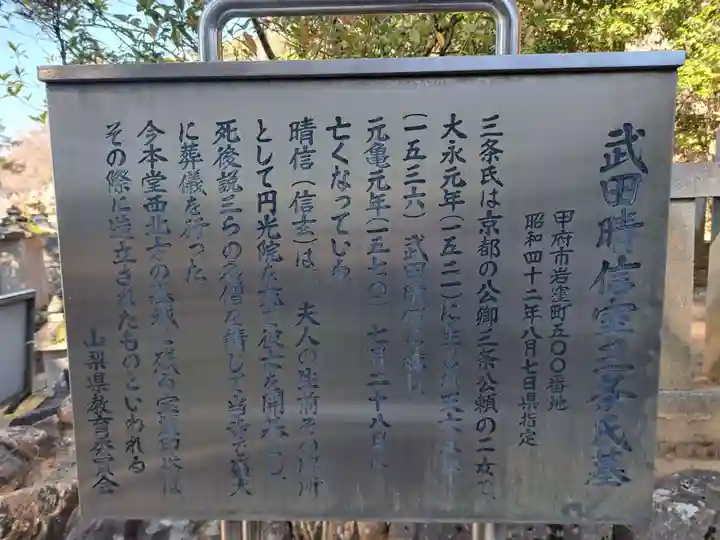 武田晴信室三条氏墓
甲府市岩窪町五〇〇番地
昭和四十二年八月七日県指定
三条氏は京都の公卿三条公頼の二女で、
大永元年(一五二一)に生れ天文五年
(一五三六) 武田晴信に嫁し
元亀元年(一五七〇) 七月二十八日に
亡くなっている
晴信(信玄)は、 夫人の生前その
として円光院を
死後説三らの名僧を請して当寺で盛大
に葬儀を行った
今本堂西北方の 残る宝篋印塔は
その際に造立されたものといわれる
山梨県教育委員会